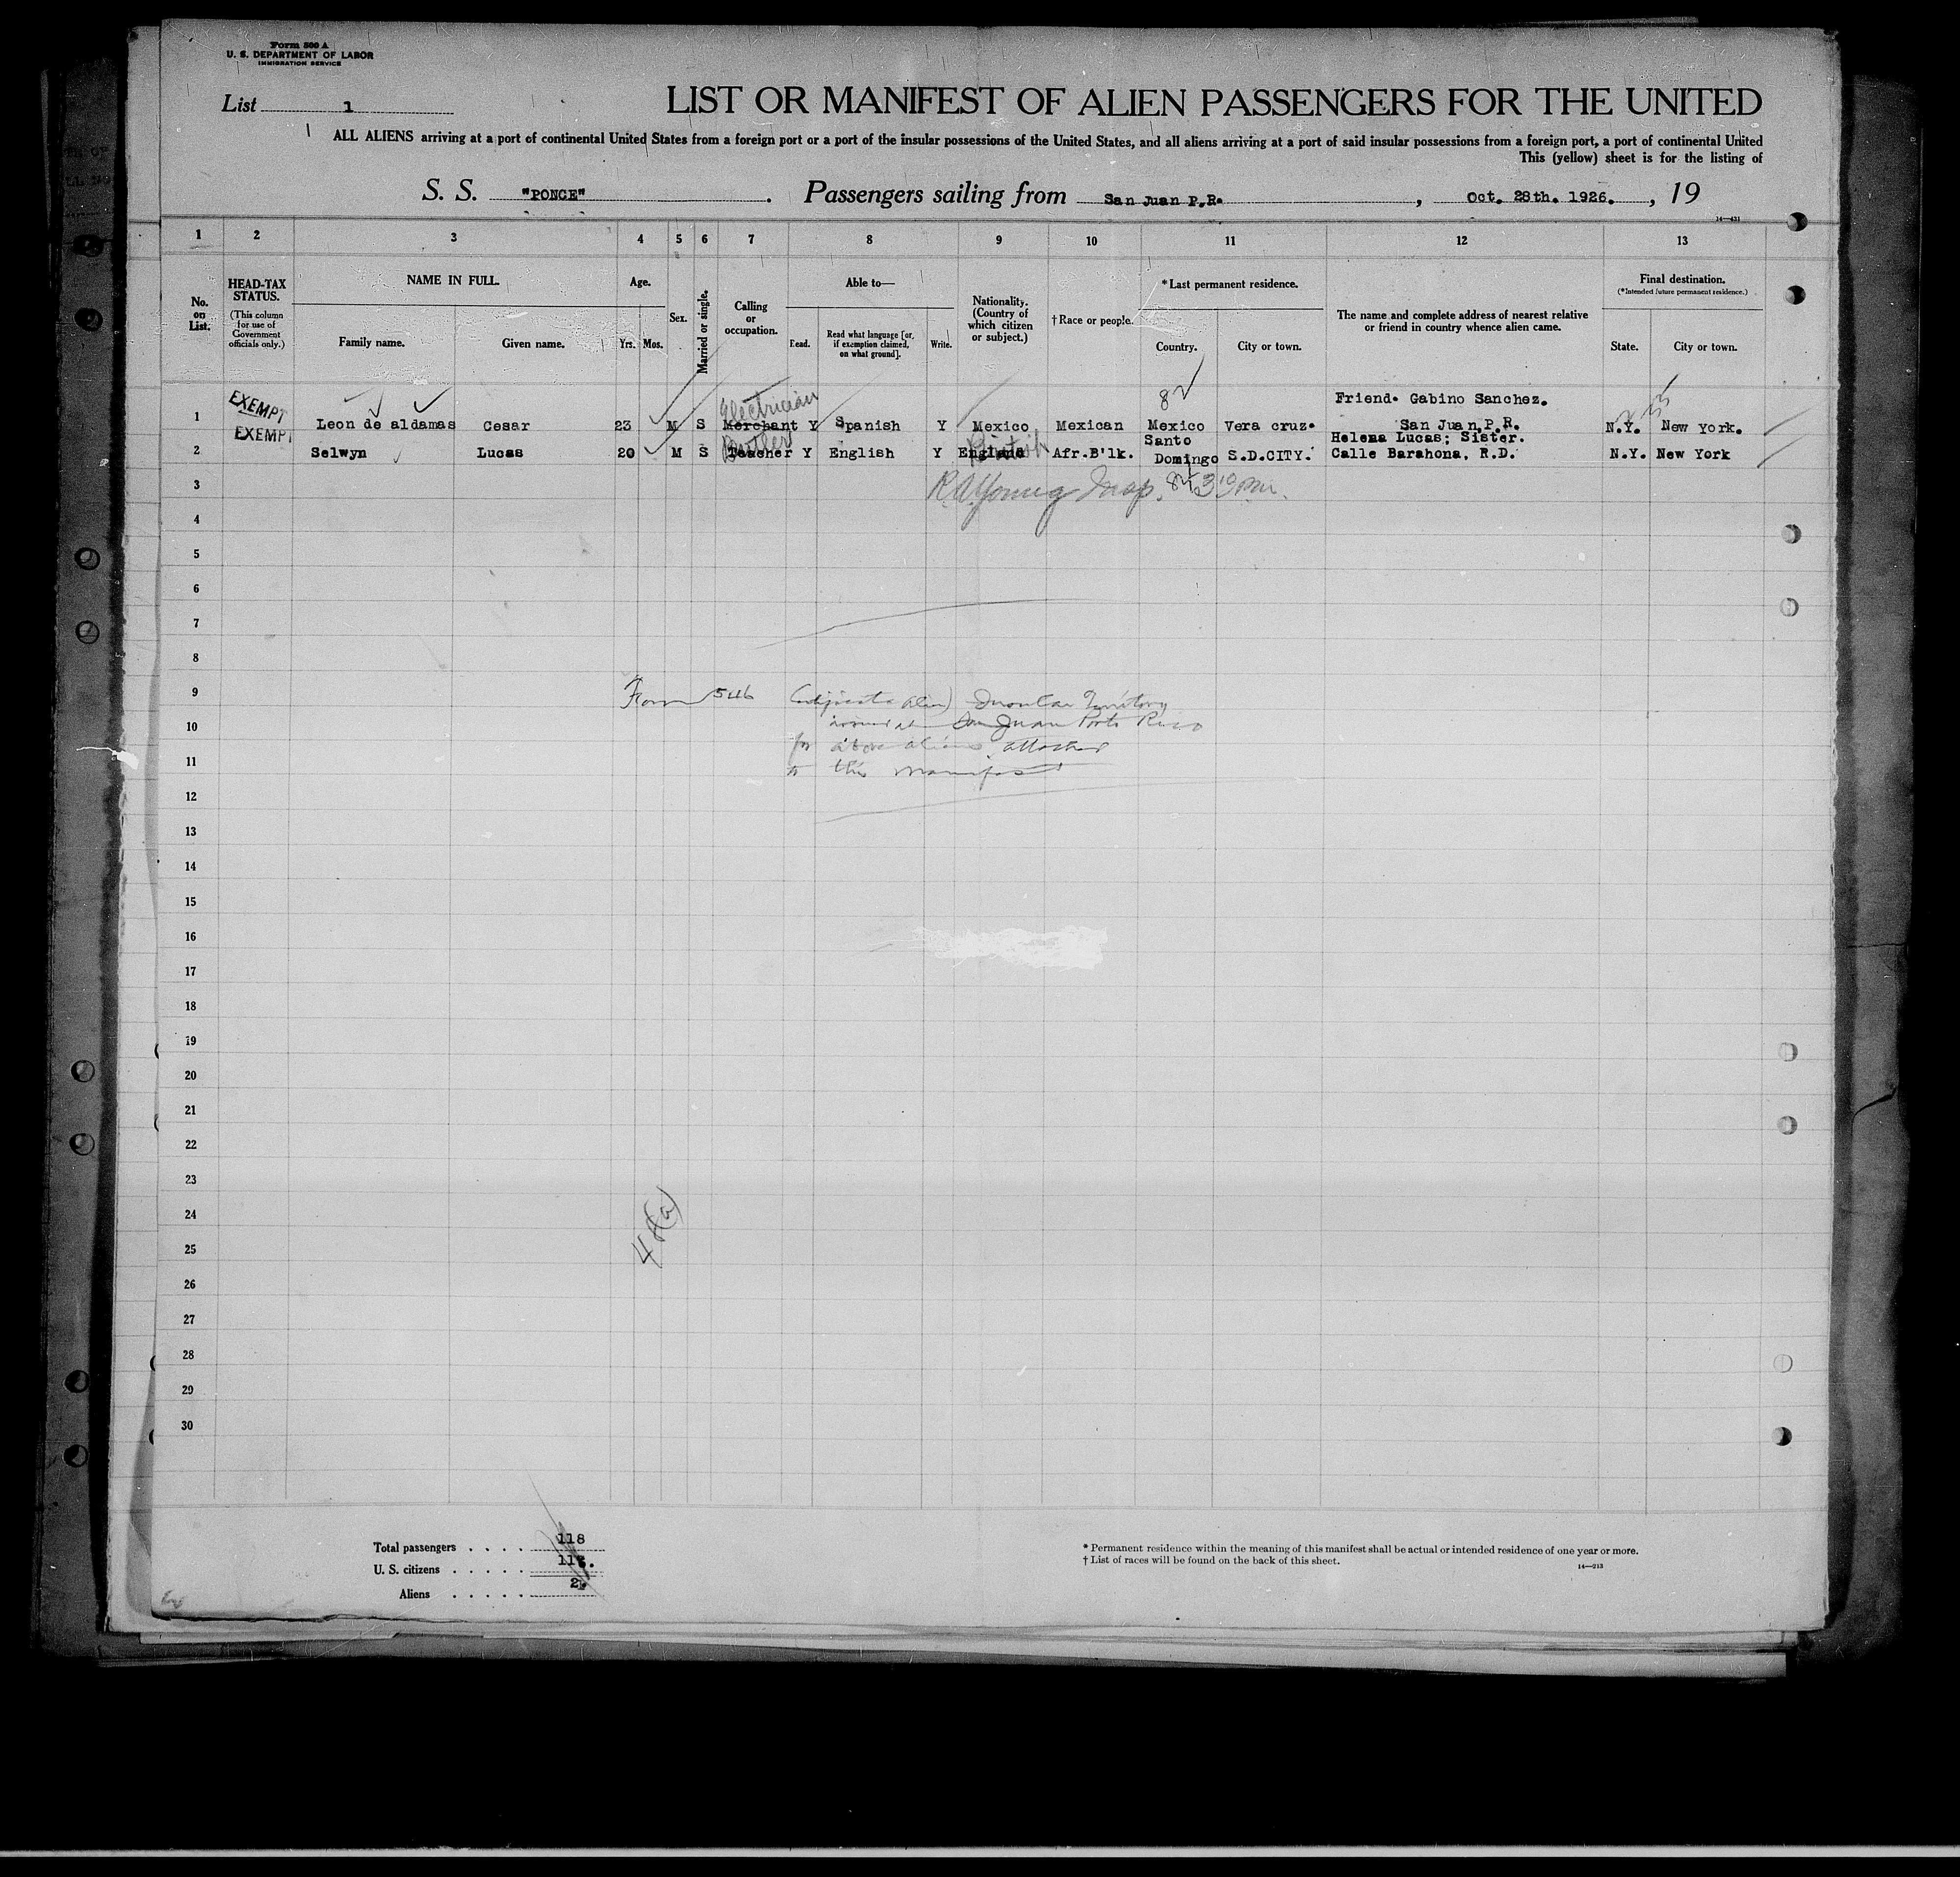 Form 500 A
U. S. DEPARTMENT OF LABOR
IMMIGRATION SERVICE
List 1
LIST OR MANIFEST OF ALIEN PASSENGERS FOR THE UNITED
ALL ALIENS arriving at a port of continental United States from a foreign port or a port of the insular possessions of the United States, and all aliens arriving at a port of said insular possessions from a foreign port, a port of continental United
This (yellow) sheet is for the listing of
S. S. "PONCE". Passengers sailing from San Juan P.R. , Oct. 28th. 1926. , 19
14—431
1 2 3 4 5 6 7 8 9 10 11 12 13
No. on List.
HEAD-TAX STATUS.
(This column for use of Government officials only.)
NAME IN FULL.
Family name.
Given name.
Age.
Yrs. Mos.
Sex.
Married or single.
Calling or occupation.
Able to—
Read.
Read what language [or, if exemption claimed, on what ground].
Write.
Nationality. (Country of which citizen or subject.)
† Race or people.
* Last permanent residence.
Country.
City or town.
The name and complete address of nearest relative or friend in country whence alien came.
Final destination.
(*Intended future permanent residence.)
State.
City or town.
82
Electrician
Friend. Gabino Sanchez.
1 EXEMPT Leon de aldamas Cesar 23 M S Merchant Y Spanish Y Mexico Mexican Mexico Vera cruz. San Juan, P.R. N.Y. New York.
Butler British Santo Helena Lucas; Sister.
2 EXEMPT Selwyn Lucas 20 M S Teacher Y English Y England Afr.B'lk. Domingo S.D.CITY. Calle Barahona, R.D. N.Y. New York
3 R.A. Young Insp. 3 10 pm.
4
5
6
7
8
9 Form 546 (Certificate alien) Insular Territory
10 issued at San Juan Porto Rico
for above aliens attached
11 to this manifest
12
13
14
15
16
17
18
19
20
21
22
23
24
25
26
27
28
29
30
Total passengers . . . . 118
U. S. citizens . . . . .
Aliens . . . . . 2.
* Permanent residence within the meaning of this manifest shall be actual or intended residence of one year or more.
† List of races will be found on the back of this sheet.
14—213